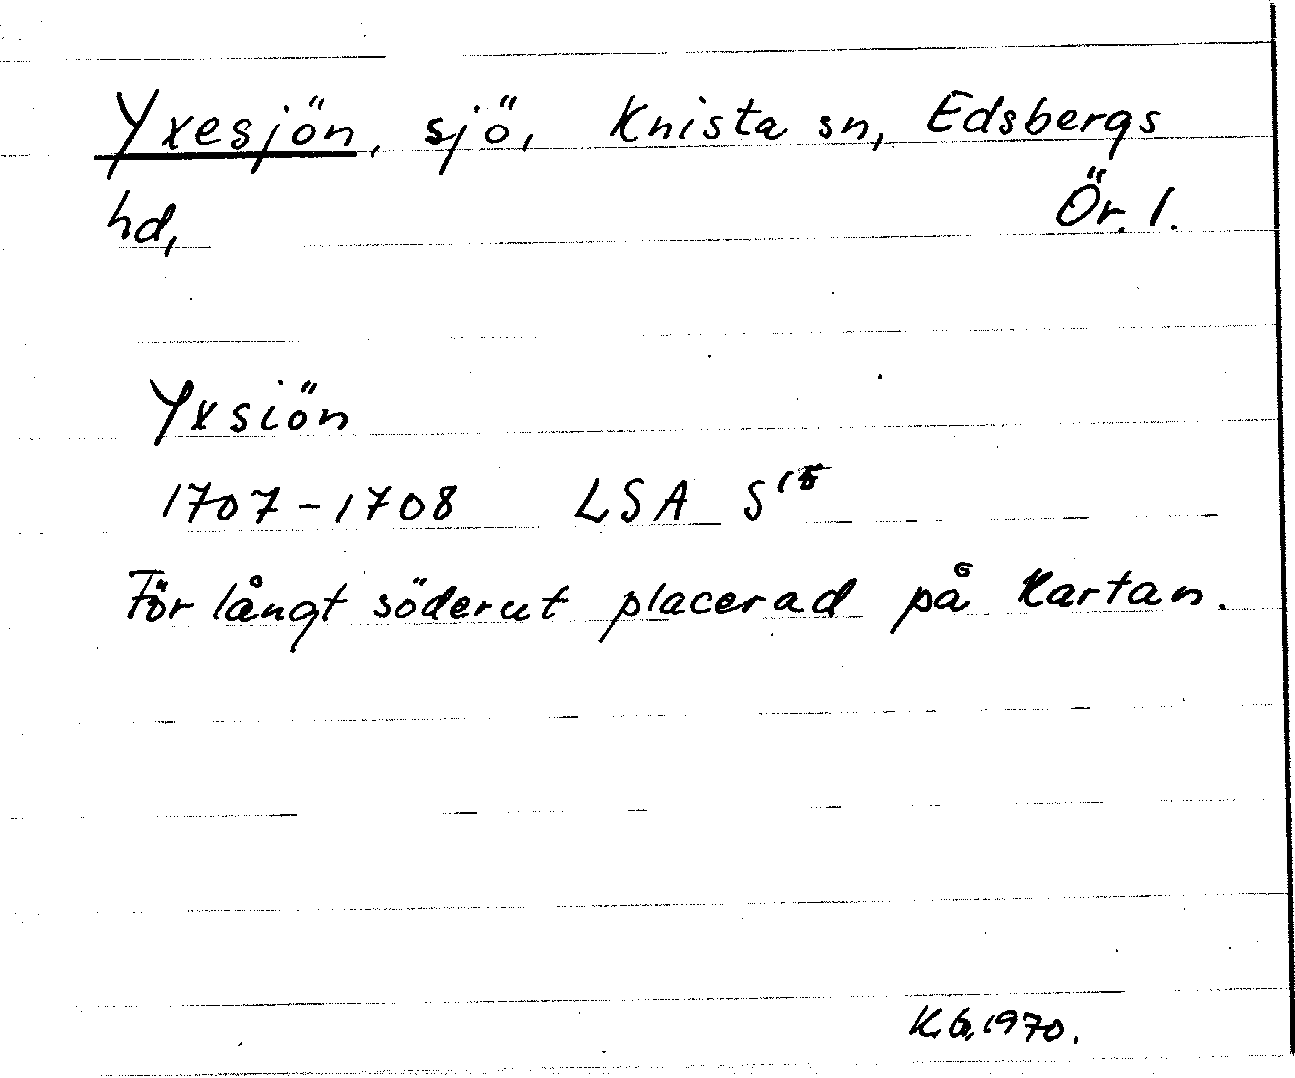 Yxesjön, sjö, Knista sn, Edsbergs
hd, Ör. l.
Yxsiön
1707-1708 LSA S¹⁵
För långt söderut placerad på kartan.
K.G. 1970.